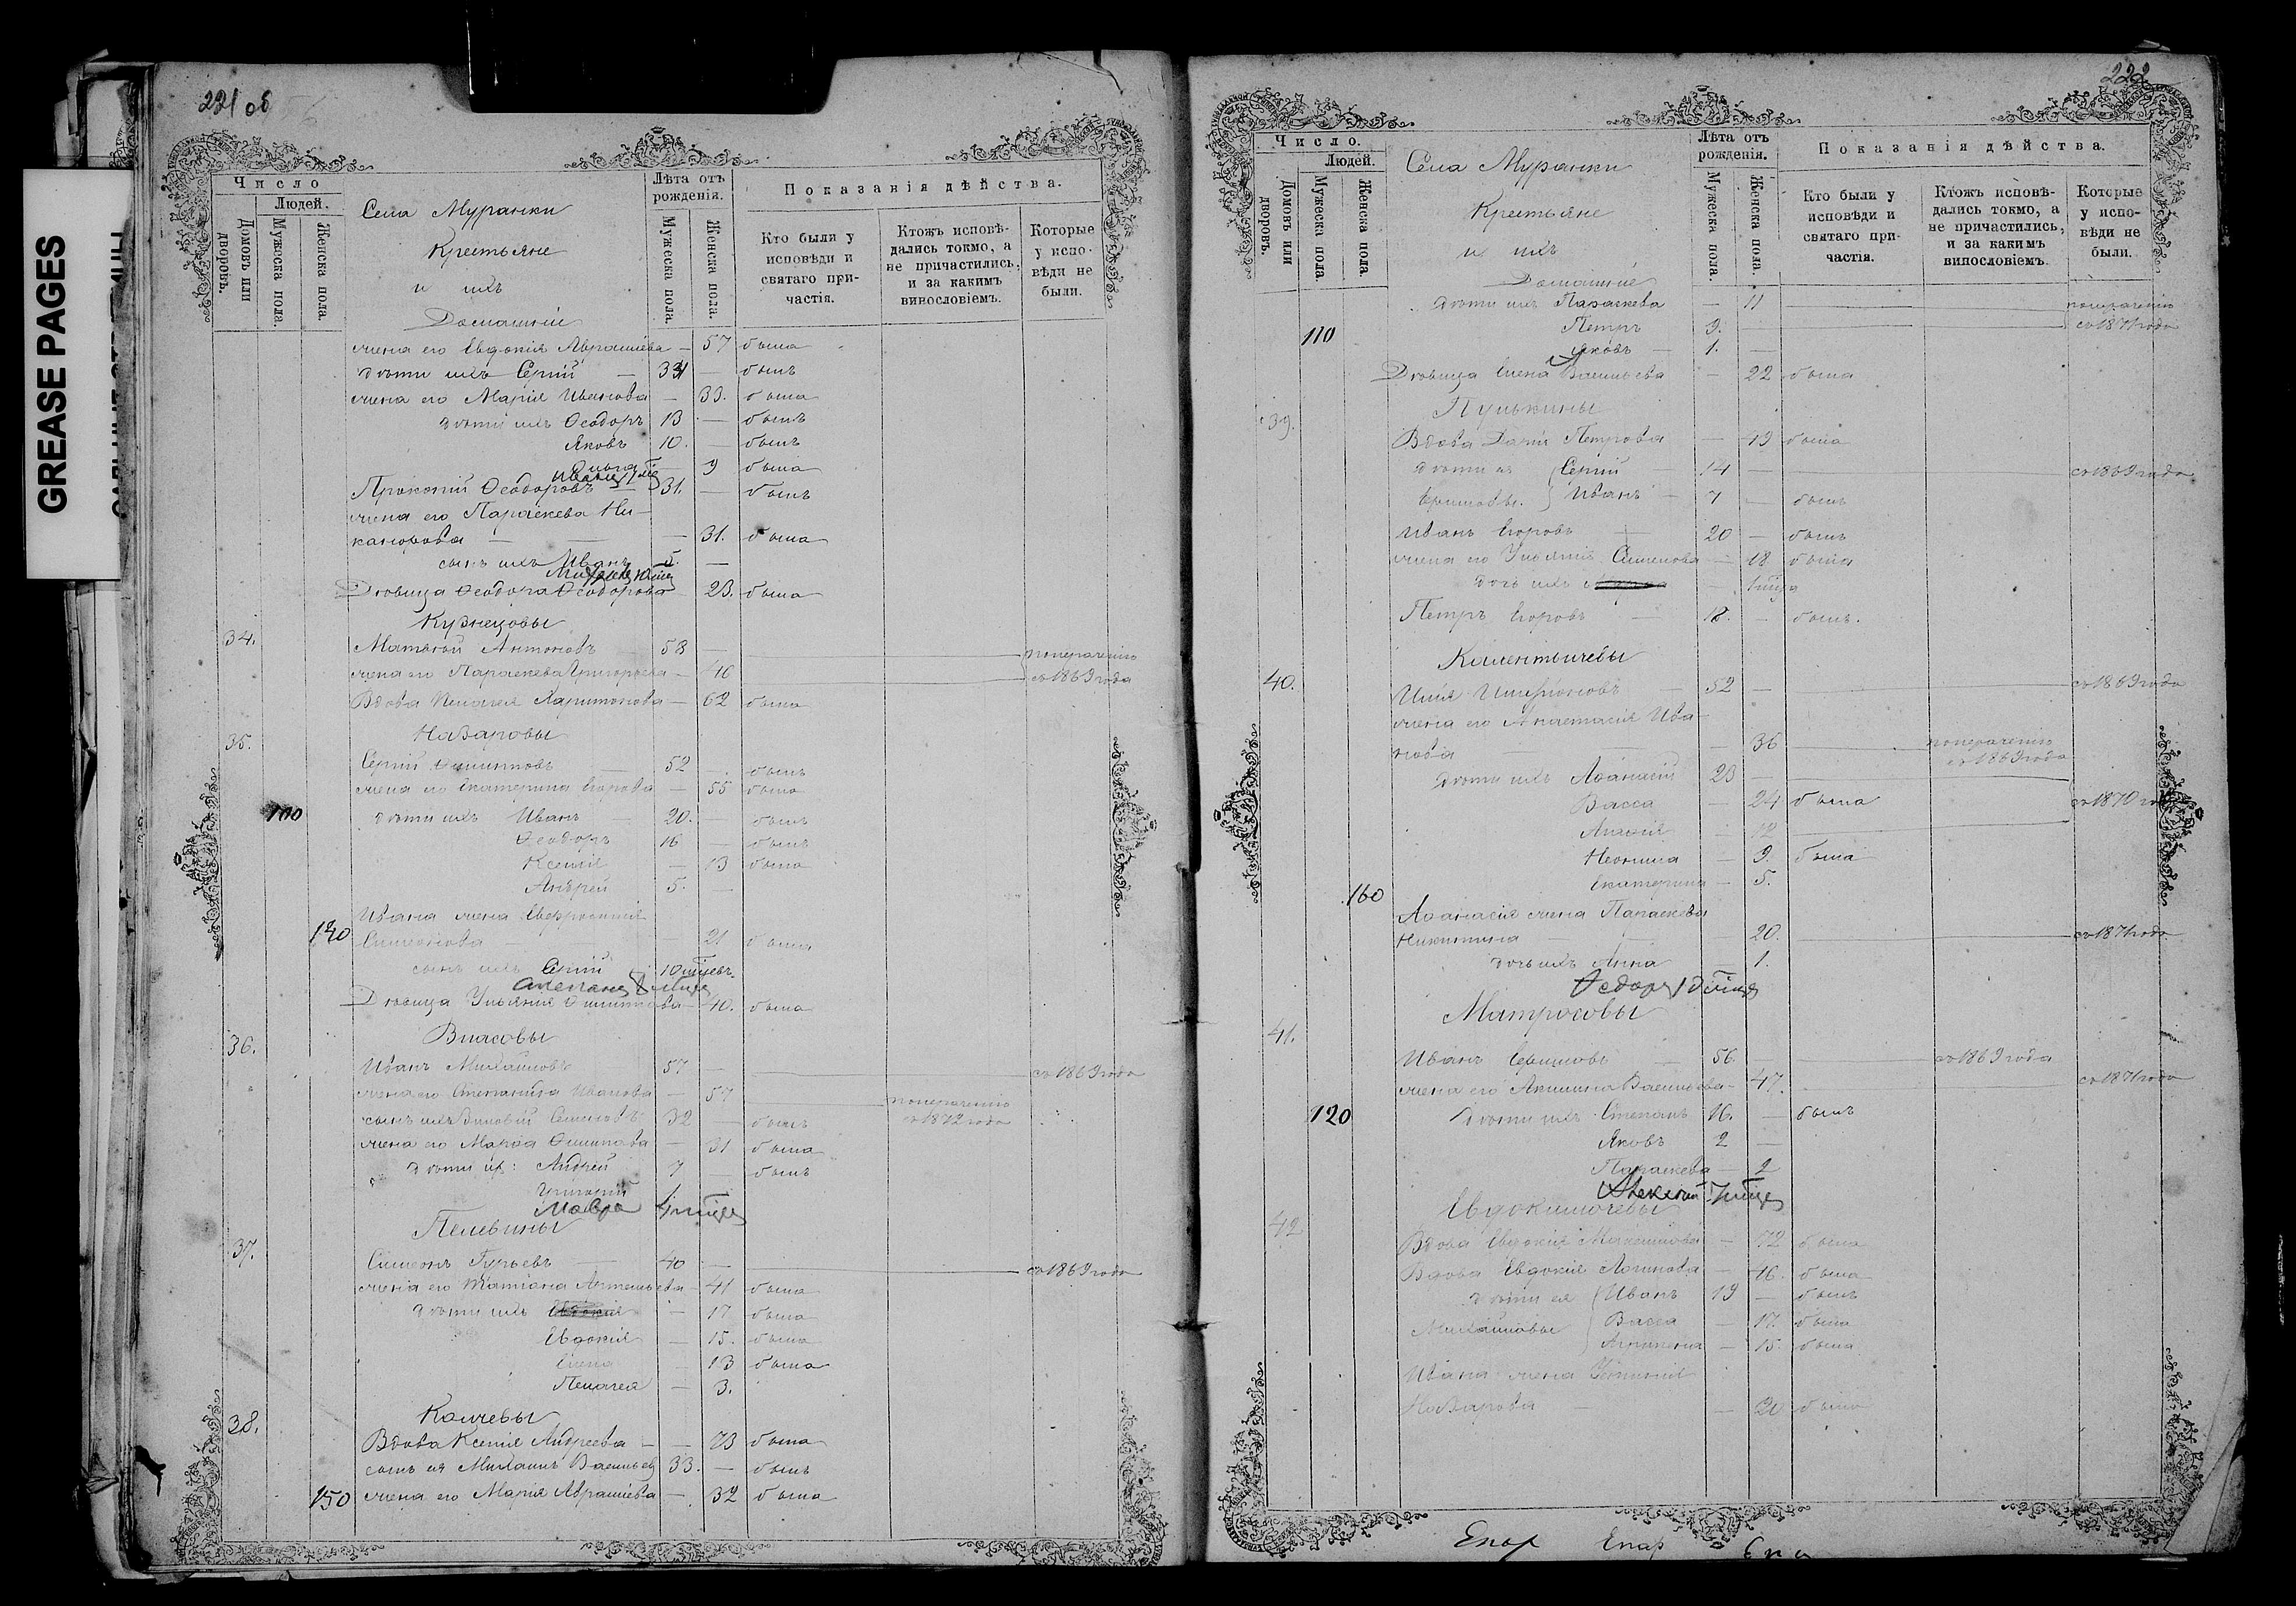 GREASE PAGES
221 об
Число
Людей.
Домовъ или дворовъ.
Мужеска пола.
Женска пола.
Села Муранки
Крестьяне
и ихъ
Домашніе
Лѣта отъ рожденія.
Мужеска пола.
Женска пола.
Показанія дѣйства.
Кто были у исповѣди и святаго причастія.
Ктожъ исповѣдались токмо, а не причастились, и за какимъ винословіемъ.
Которые у исповѣди не были.
жена его Евдокія Авраміева — 57 была
дѣти ихъ Сергій — 31 — былъ
жена его Марія Иванова — 33. была
дѣти ихъ Ѳеодоръ 13 — былъ
Яковъ 10. — былъ
9 была
Прокопій Ѳеодоровъ — 31. — былъ
жена его Параскева Ни-
канорова — — — 31. была
сынъ ихъ Иванъ 5. —
Дѣвица Ѳеодора Ѳеодорова 23. была
Кузнецовы
34.
Матвѣй Антоновъ 58 —
жена его Параскева Григорьева — 46
по нераченію съ 1869 года
Вдова Пелагея Харитонова — 62 была
Назаровы
35.
Сергій Филиповъ — 52 — былъ
жена его Екатерина Егорова — 55 была
100 дѣти ихъ Иванъ — 20. — былъ
Ѳеодоръ 16 — былъ
Ксенія — 13 была
Андрей 5. —
Ивана жена Евфросинія
140 Симеонова — 21 была
сынъ ихъ Сергій 10 мѣсяцевъ
Степанъ
Дѣвица Ульянія Филипова — 40. была
Власовы
36.
Иванъ Михайловъ 57 — съ 1869 года
жена его Степанида Иванова — 57 по нераченію съ 1872 года
сынъ ихъ Семеновъ 32 — былъ
жена его Марѳа Филипова — 31 была
дѣти их: Андрей 7 — былъ
Григорій 1.
Мавра
Пелевины
37.
Симеонъ Гурьевъ — 40 — съ 1869 года
жена его Татіана Артемьева — 41 была
дѣти ихъ — 17 была
Евдокія — 15. была
Елена — 13 была
Пелагея — 3.
Калчевы
38.
Вдова Ксенія Андреева — — 73 была
сынъ ея Михаилъ Васильев 33. — былъ
150 жена его Марія Авраміева — 32 была
222
Число.
Людей.
Домовъ или дворовъ.
Мужеска пола
Женска пола.
Села Муранки
Крестьяне
и ихъ
Домашніе
Лѣта отъ рожденія.
Мужеска пола.
Женска пола.
Показанія дѣйства.
Кто были у исповѣди и святаго причастія.
Ктожъ исповѣдались токмо, а не причастились, и за какимъ винословіемъ.
Которые у исповѣди не были.
дѣти ихъ Параскева — 11 по нераченію
110 Петръ 9. — съ 1871 года
Яковъ — 1. —
Дѣвица Елена Васильева — 22 была
Пулькины
39.
Вдова Дарія Петрова — 49 была
дѣти ея Сергій — 14 — съ 1869 года
Иванъ — 7 — былъ
Иванъ Егоровъ — 20 — былъ
жена его Ульянія Семенова — 18 была
дочь ихъ —
Петръ Егоровъ — 18. — былъ.
Калентьичевы
40.
Илія — 52 — съ 1869 года
жена его Анастасія Ива-
нова — — — 36 по нераченію съ 1869 года
дѣти ихъ Аѳанасій 23 —
Васса — 24 была съ 1870
Неонила — 9. была
Екатерина — 5.
160 Аѳанасія жена Параскева
Никитина — 20. съ 1871 года
дочь ихъ Анна — 1.
Ѳедоръ
Матросовы
41.
Иванъ — 56 — съ 1869 года
жена его Акилина Васильева — 47. съ 1871 года
120 дѣти ихъ Степанъ 16. — былъ
Яковъ 2 —
Параскева — 2
Алексѣй
Евдокимочевы
42
Вдова Евдокія Максимова — 72 была
Вдова Евдокія Логинова — 46. была
дѣти ея Иванъ 19 — былъ
Михайловы Васса — 17. была
Агрипена — 15. была
Ивана жена
Назарова — — 20 была
Епар Епар